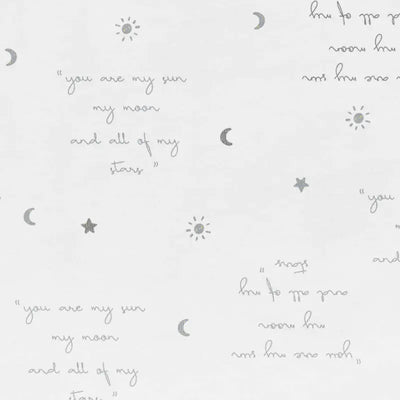 and all of my
my moon
you are my sun
"you are my sun
my moon
and all of my
stars"
"you
and
stars"
and all of my
my moon
"you are my sun
"you are my sun
my moon
and all of my
stars"